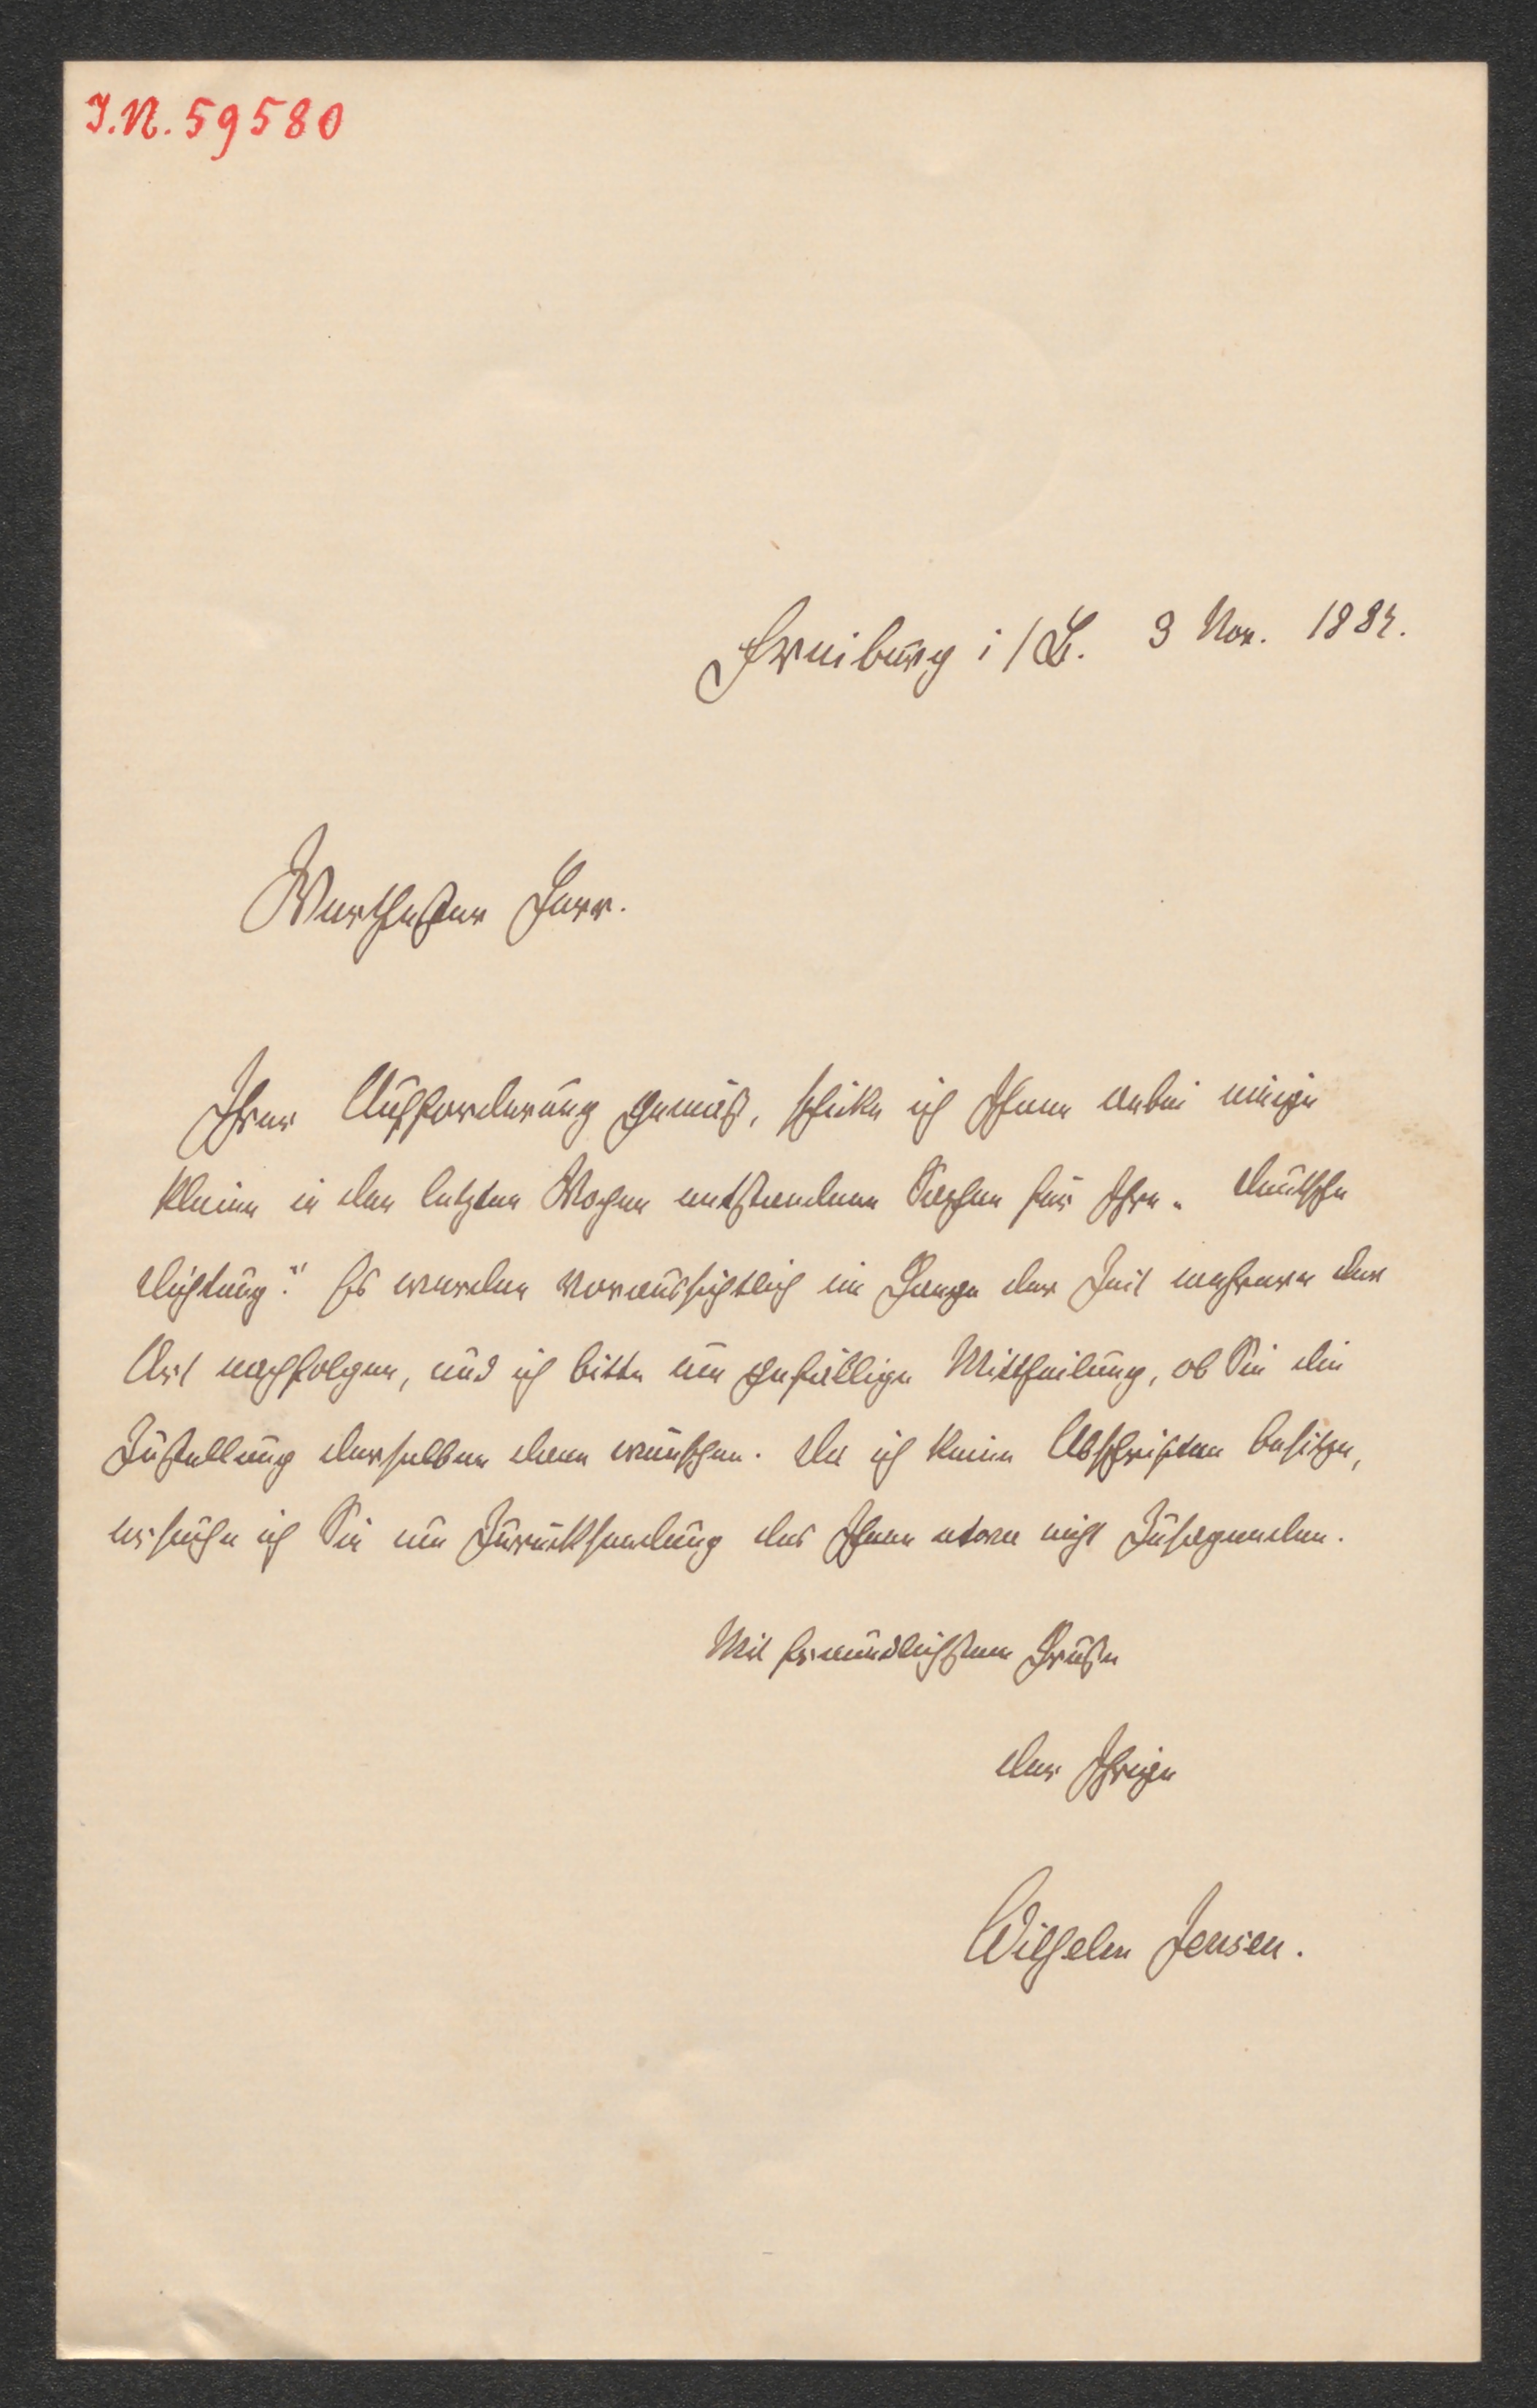 I.N. 59580
Freiburg i/B. 3 Nov. 1884.
Werthester Herr.
Ihrer Aufforderung gemäß, schicke ich Ihnen anbei einige
kleine in den letzten Wochen entstandene Sachen für Ihre „Deutsche
Dichtung." Es werden voraussichtlich im Gange der Zeit mehrere der
Art nachfolgen, und ich bitte um gefällige Mittheilung, ob Sie die
Zustellung derselben dann wünschen. Da ich keine Abschriften besitze,
ersuche ich Sie um Zurücksendung des Ihnen etwa nicht Zusagenden.
Mit freundlichstem Gruße
der Ihrige
Wilhelm Jensen.